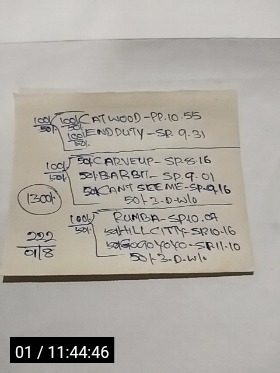 100/ 100/ CATWOOD-PP.10.55
50/. 50/.
100/ ENDDUTY-SP.9.31
50/.
100/ 50/. CARVEUP-SP.8.16
50/. 50/. BARBIT-SP.9.01
50/. CANTSEEME-SP.9.16
50/-3-D.W/o
1300/.
100/ RUMBA-SP.10.09
50/. 50/. HILLCITY-SP.10.16
50/. GOGOYOYO-SP.11.10
50/-3-D.W/o
222
01/8
01 / 11:44:46